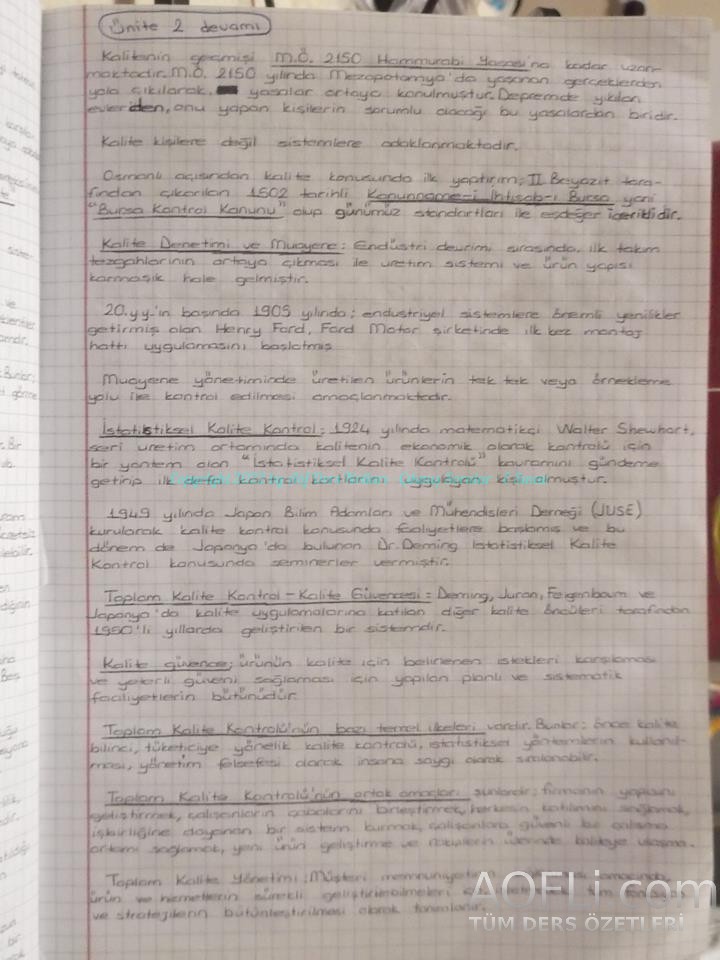 Ünite 2 devamı
Kalitenin geçmişi M.Ö. 2150 Hammurabi Yasası'na kadar uzan-
maktadır. M.Ö. 2150 yılında Mezopotamya'da yaşanan gerçeklerden
yola çıkılarak, yasalar ortaya konulmuştur. Depremde yıkılan
evlerden, onu yapan kişilerin sorumlu olacağı bu yasalardan biridir.
Kalite kişilere değil sistemlere odaklanmaktadır.
Osmanlı açısından kalite konusunda ilk yaptırım; II Beyazıt tara-
fından çıkarılan 1502 tarihli Kanunname-i İhtisab-ı Bursa yani
"Bursa Kontrol Kanunu" olup günümüz standartları ile eşdeğer içeriklidir.
Kalite Denetimi ve Muayene: Endüstri devrimi sırasında, ilk takım
tezgahlarının ortaya çıkması ile üretim sistemi ve ürün yapısı
karmaşık hale gelmiştir.
20.yy.'ın başında 1905 yılında; endüstriyel sistemlere önemli yenilikler
getirmiş olan Henry Ford, Ford Motor şirketinde ilk kez montaj
hattı uygulamasını başlatmış
Muayene yönetiminde üretilen ürünlerin tek tek veya örnekleme
yolu ile kontrol edilmesi amaçlanmaktadır.
İstatistiksel Kalite Kontrol; 1924 yılında matematikçi Walter Shewhart,
seri üretim ortamında kalitenin ekonomik olarak kontrolü için
bir yöntem olan "İstatistiksel Kalite Kontrolü" kavramını gündeme
getirip ilk defa kontrol kartlarını uygulayan kişi olmuştur.
1949 yılında Japon Bilim Adamları ve Mühendisleri Derneği (JUSE)
kurularak kalite kontrol konusunda faaliyetlere başlamış ve bu
dönem de Japonya'da bulunan Dr. Deming İstatistiksel Kalite
Kontrol konusunda seminerler vermiştir.
Toplam Kalite Kontrol - Kalite Güvencesi = Deming, Juran, Feigenbaum ve
Japonya'da kalite uygulamalarına katılan diğer kalite öncüleri tarafından
1950'li yıllarda geliştirilen bir sistemdir.
Kalite güvence; ürünün kalite için belirlenen istekleri karşılaması
ve yeterli güveni sağlaması için yapılan planlı ve sistematik
faaliyetlerin bütünüdür.
Toplam Kalite Kontrolü'nün bazı temel ilkeleri vardır. Bunlar; önce kalite
bilinci, tüketiciye yönelik kalite kontrolü, istatistiksel yöntemlerin kullanıl-
ması, yönetim felsefesi olarak insana saygı olarak sıralanabilir.
Toplam Kalite Kontrolü'nün ortak amaçları şunlardır; firmanın yapısını
geliştirmek, çalışanların çabalarını birleştirmek, herkesin katılımını sağlamak,
işbirliğine dayanan bir sistem kurmak, çalışanlara güvenli bir çalışma
ortamı sağlamak, yeni ürün geliştirme ve rakiplerin üzerinde kaliteye ulaşma.
Toplam Kalite Yönetimi: Müşteri memnuniyetini
ürün ve hizmetlerin sürekli geliştirilebilmeleri
ve stratejilerin bütünleştirilmesi olarak tanımlanır.
AOFLi.com
TÜM DERS ÖZETLERİ